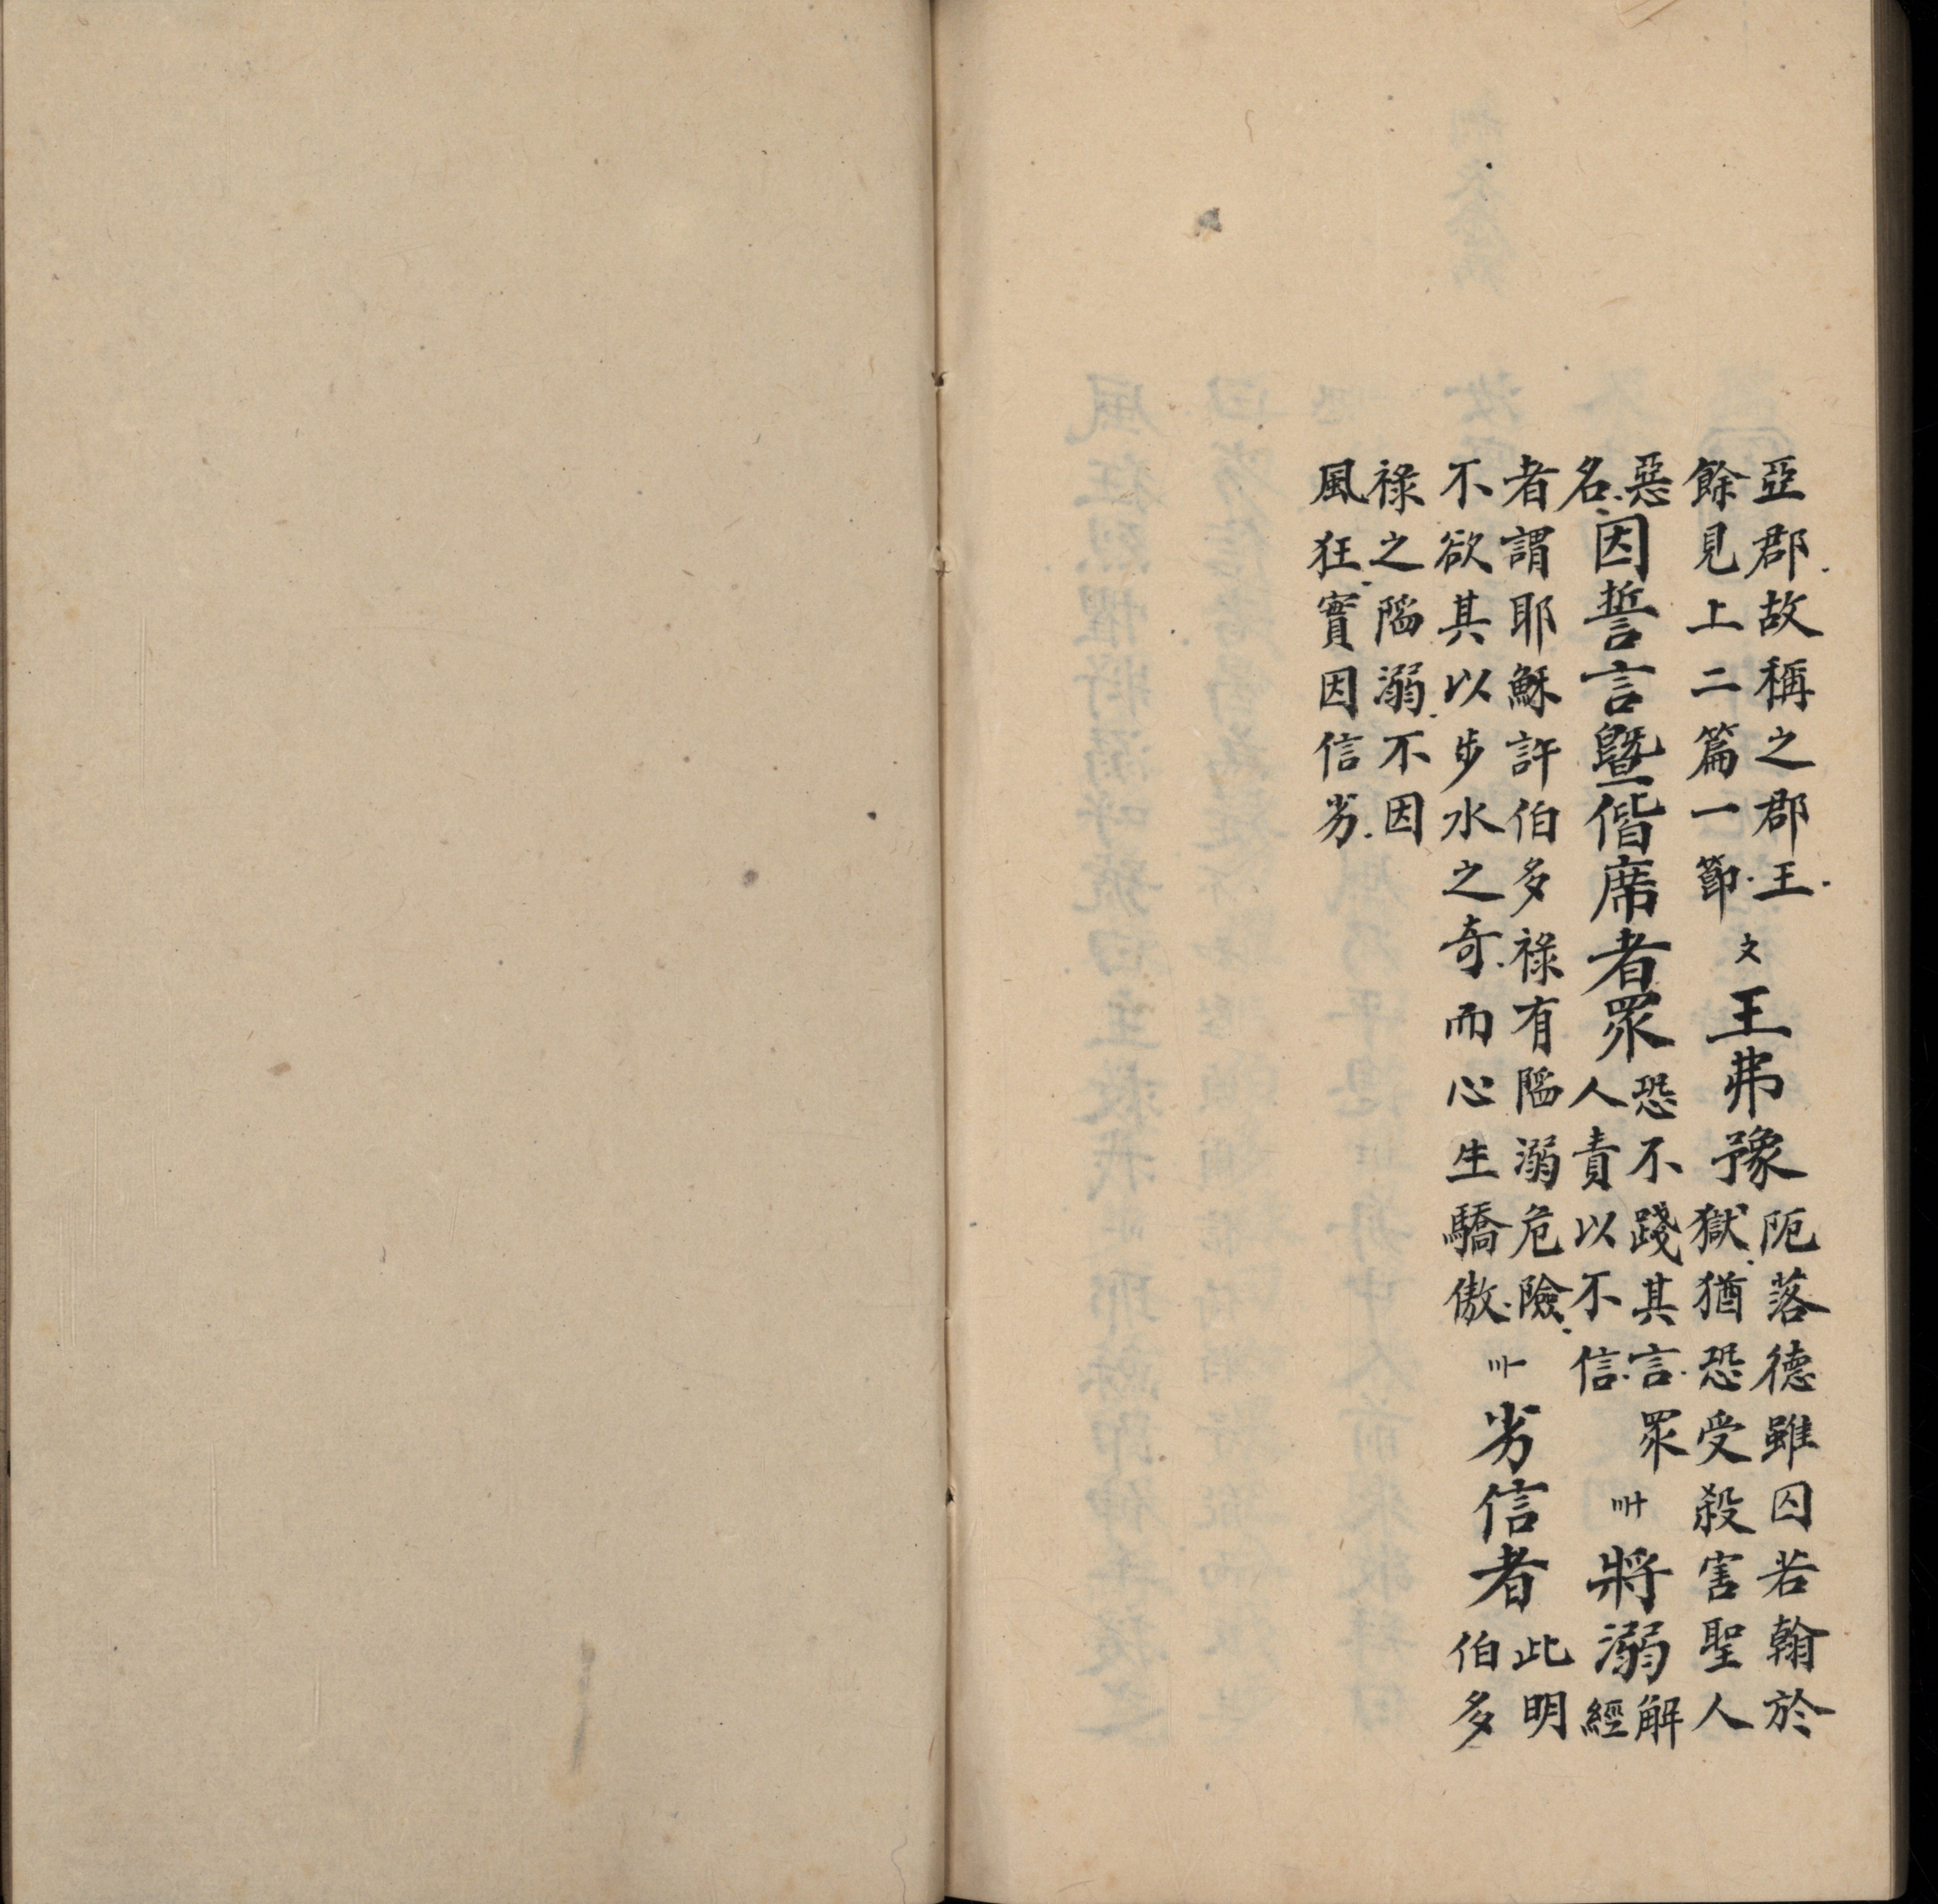 亞郡故稱之郡王
餘見上二篇一節
〩王弗豫
阨落德雖囚若翰於
獄猶恐受殺害聖人
惡
名
因誓言暨偕席者眾
恐不踐其言眾
人責以不信
〣十將溺
解
經
者謂耶穌許伯多祿有陷溺危險
不欲其以步水之奇而心生驕傲
劣信者
此明
伯多
祿之陷溺不因
風狂實因信劣